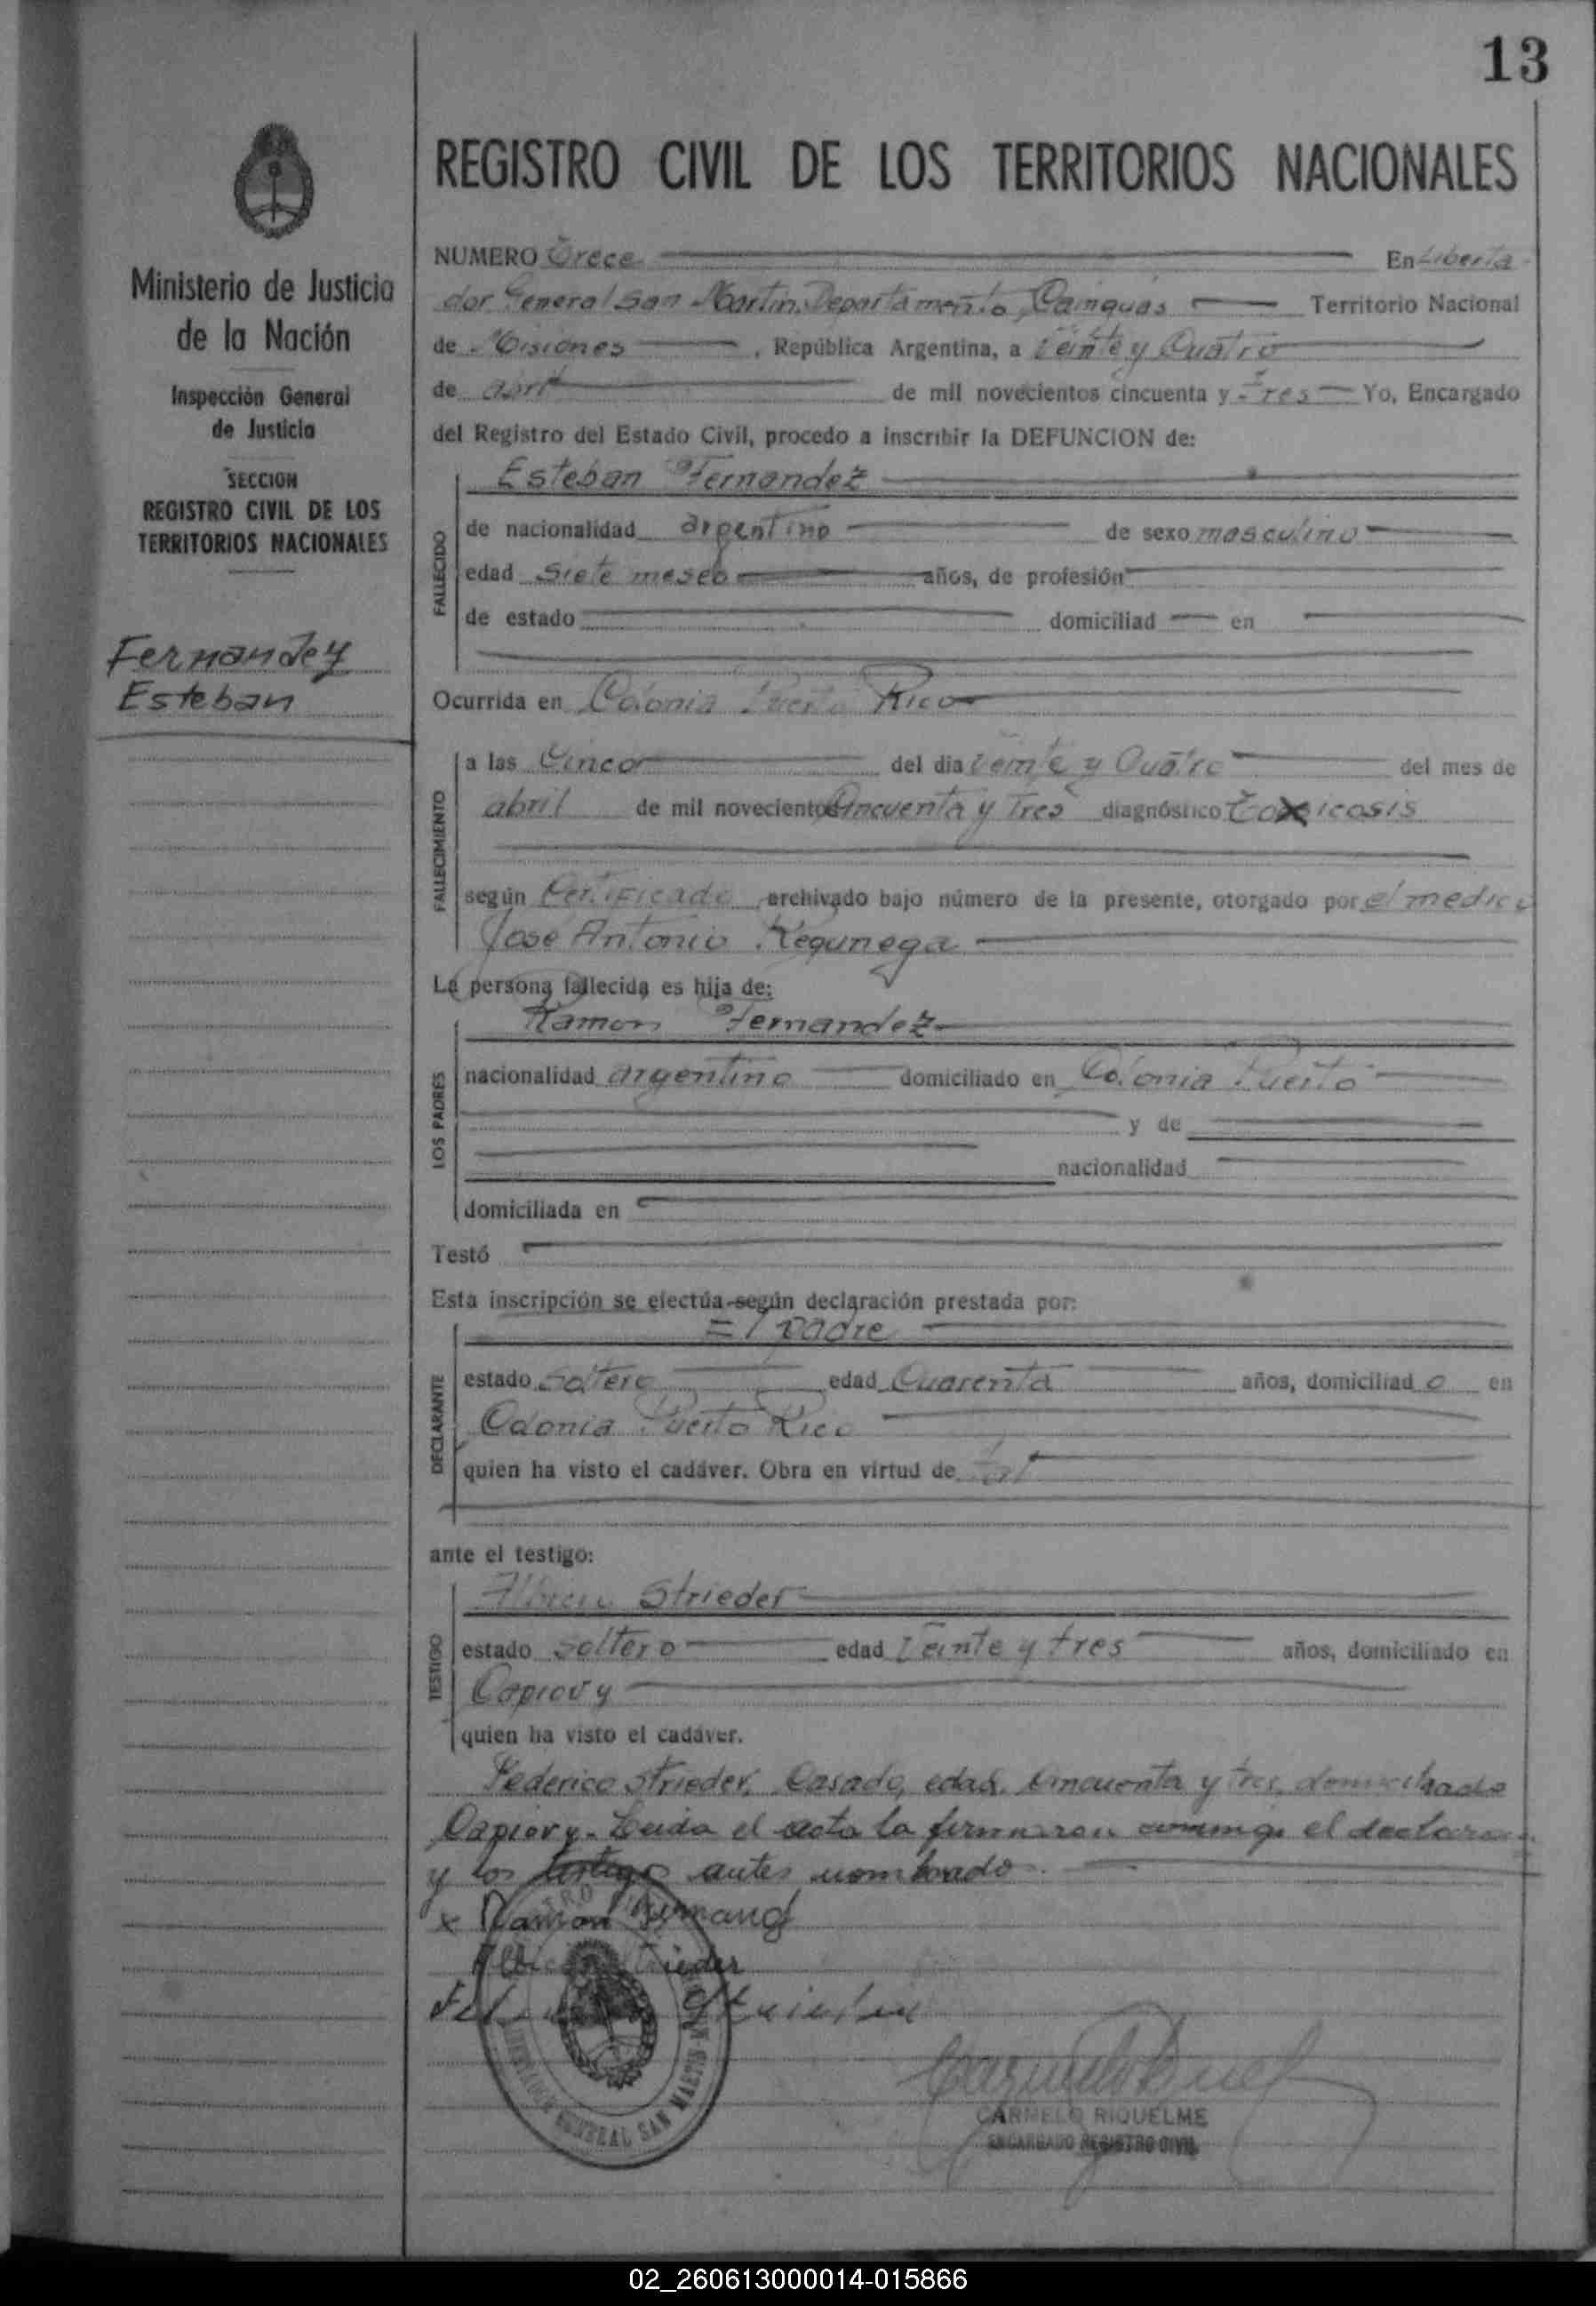 13
REGISTRO CIVIL DE LOS TERRITORIOS NACIONALES
Ministerio de Justicia
de la Nación
Inspección General
de Justicia
SECCION
REGISTRO CIVIL DE LOS
TERRITORIOS NACIONALES
Fernandez
Esteban
NUMERO Trece En Liberta
dor General San Martin, Departamento Cainguas Territorio Nacional
de Misiones, República Argentina, a Veinte y Cuatro
de abril de mil novecientos cincuenta y Tres Yo, Encargado
del Registro del Estado Civil, procedo a inscribir la DEFUNCION de:
FALLECIDO
Esteban Fernandez
de nacionalidad argentino de sexo masculino
edad Siete meses años, de profesión
de estado domiciliad en
Ocurrida en Colonia Puerto Rico
FALLECIMIENTO
a las Cinco del dia Veinte y Cuatro del mes de
abril de mil novecientos Cincuenta y Tres diagnóstico toxicosis
según Certificado archivado bajo número de la presente, otorgado por el medico
Jose Antonio
La persona fallecida es hija de:
LOS PADRES
Ramon Fernandez
nacionalidad argentino domiciliado en Colonia Puerto
y de
nacionalidad
domiciliada en
Testó
Esta inscripción se efectúa según declaración prestada por:
DECLARANTE
El padre
estado Soltero edad Cuarenta años, domiciliad o en
Colonia Puerto Rico
quien ha visto el cadáver. Obra en virtud de tal
ante el testigo:
TESTIGO
Strieder
estado Soltero edad Veinte y tres años, domiciliado en
Capiovy
quien ha visto el cadáver.
Federico Strieder, Casado, edad, Cincuenta y tres, domiciliado
Capiovy. Leida el acta la firmaron conmigo el declarante
y los testigos antes nombrado.
x Ramon Fernand
Strieder
LIBERTADOR GENERAL SAN MARTIN
CARMELO RIQUELME
ENCARGADO REGISTRO CIVIL
02_260613000014-015866